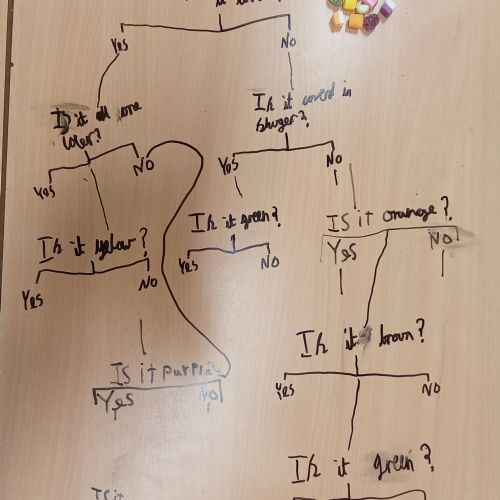 Yes
NO
Is it all one
coler?
Is it coverd in
shuger?
Yes
NO
Yes
No
Is it green?
IS it orange?
Yes
NO
Yes
No
Is it yelow?
Yes
NO
Is it brown?
Yes
NO
Is it purple?
Yes
No
Is it green?
Is it